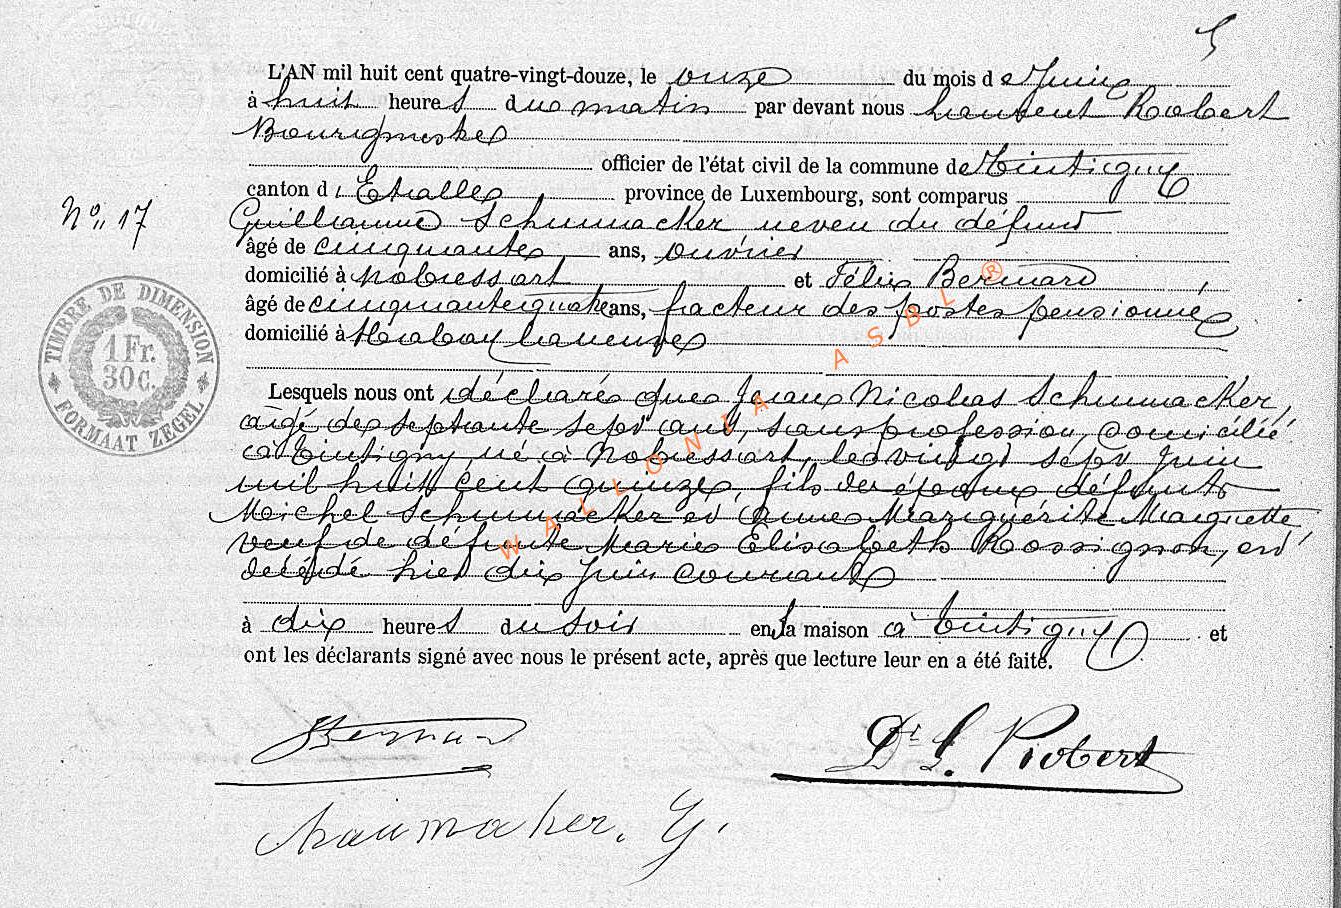 5
L'AN mil huit cent quatre-vingt-douze, le onze du mois de Juin
à huit heures du matin par devant nous Laurent Robert
Bourgmestre
officier de l'état civil de la commune de Tintigny
canton d'Etalle province de Luxembourg, sont comparus
N° 17
Guillaume Schumacker neveu du défunt
âgé de cinquante ans, ouvrier
domicilié à Nobressart et Félix Bernard
âgé de cinquante quatre ans, facteur des postes pensionné
domicilié à Habay la neuve
Lesquels nous ont déclaré que Jean Nicolas Schumacker,
âgé de septante sept ans, sans profession, domicilié
à Tintigny, né à Nobressart, le vingt sept Juin
mil huit cent quinze, fils des époux défunts
Michel Schumacker et Anne Marguérite Maquette
veuf de défunte Marie Elisabeth Rossignon, est
décédé hier dix Juin courant
à dix heures du soir en sa maison à Tintigny et
ont les déclarants signé avec nous le présent acte, après que lecture leur en a été faite.
Bernard
Dr L. Robert
Choumaker. G.
TIMBRE DE DIMENSION
1 Fr.
30 c.
FORMAAT ZEGEL
WALLONIA ASBL ®